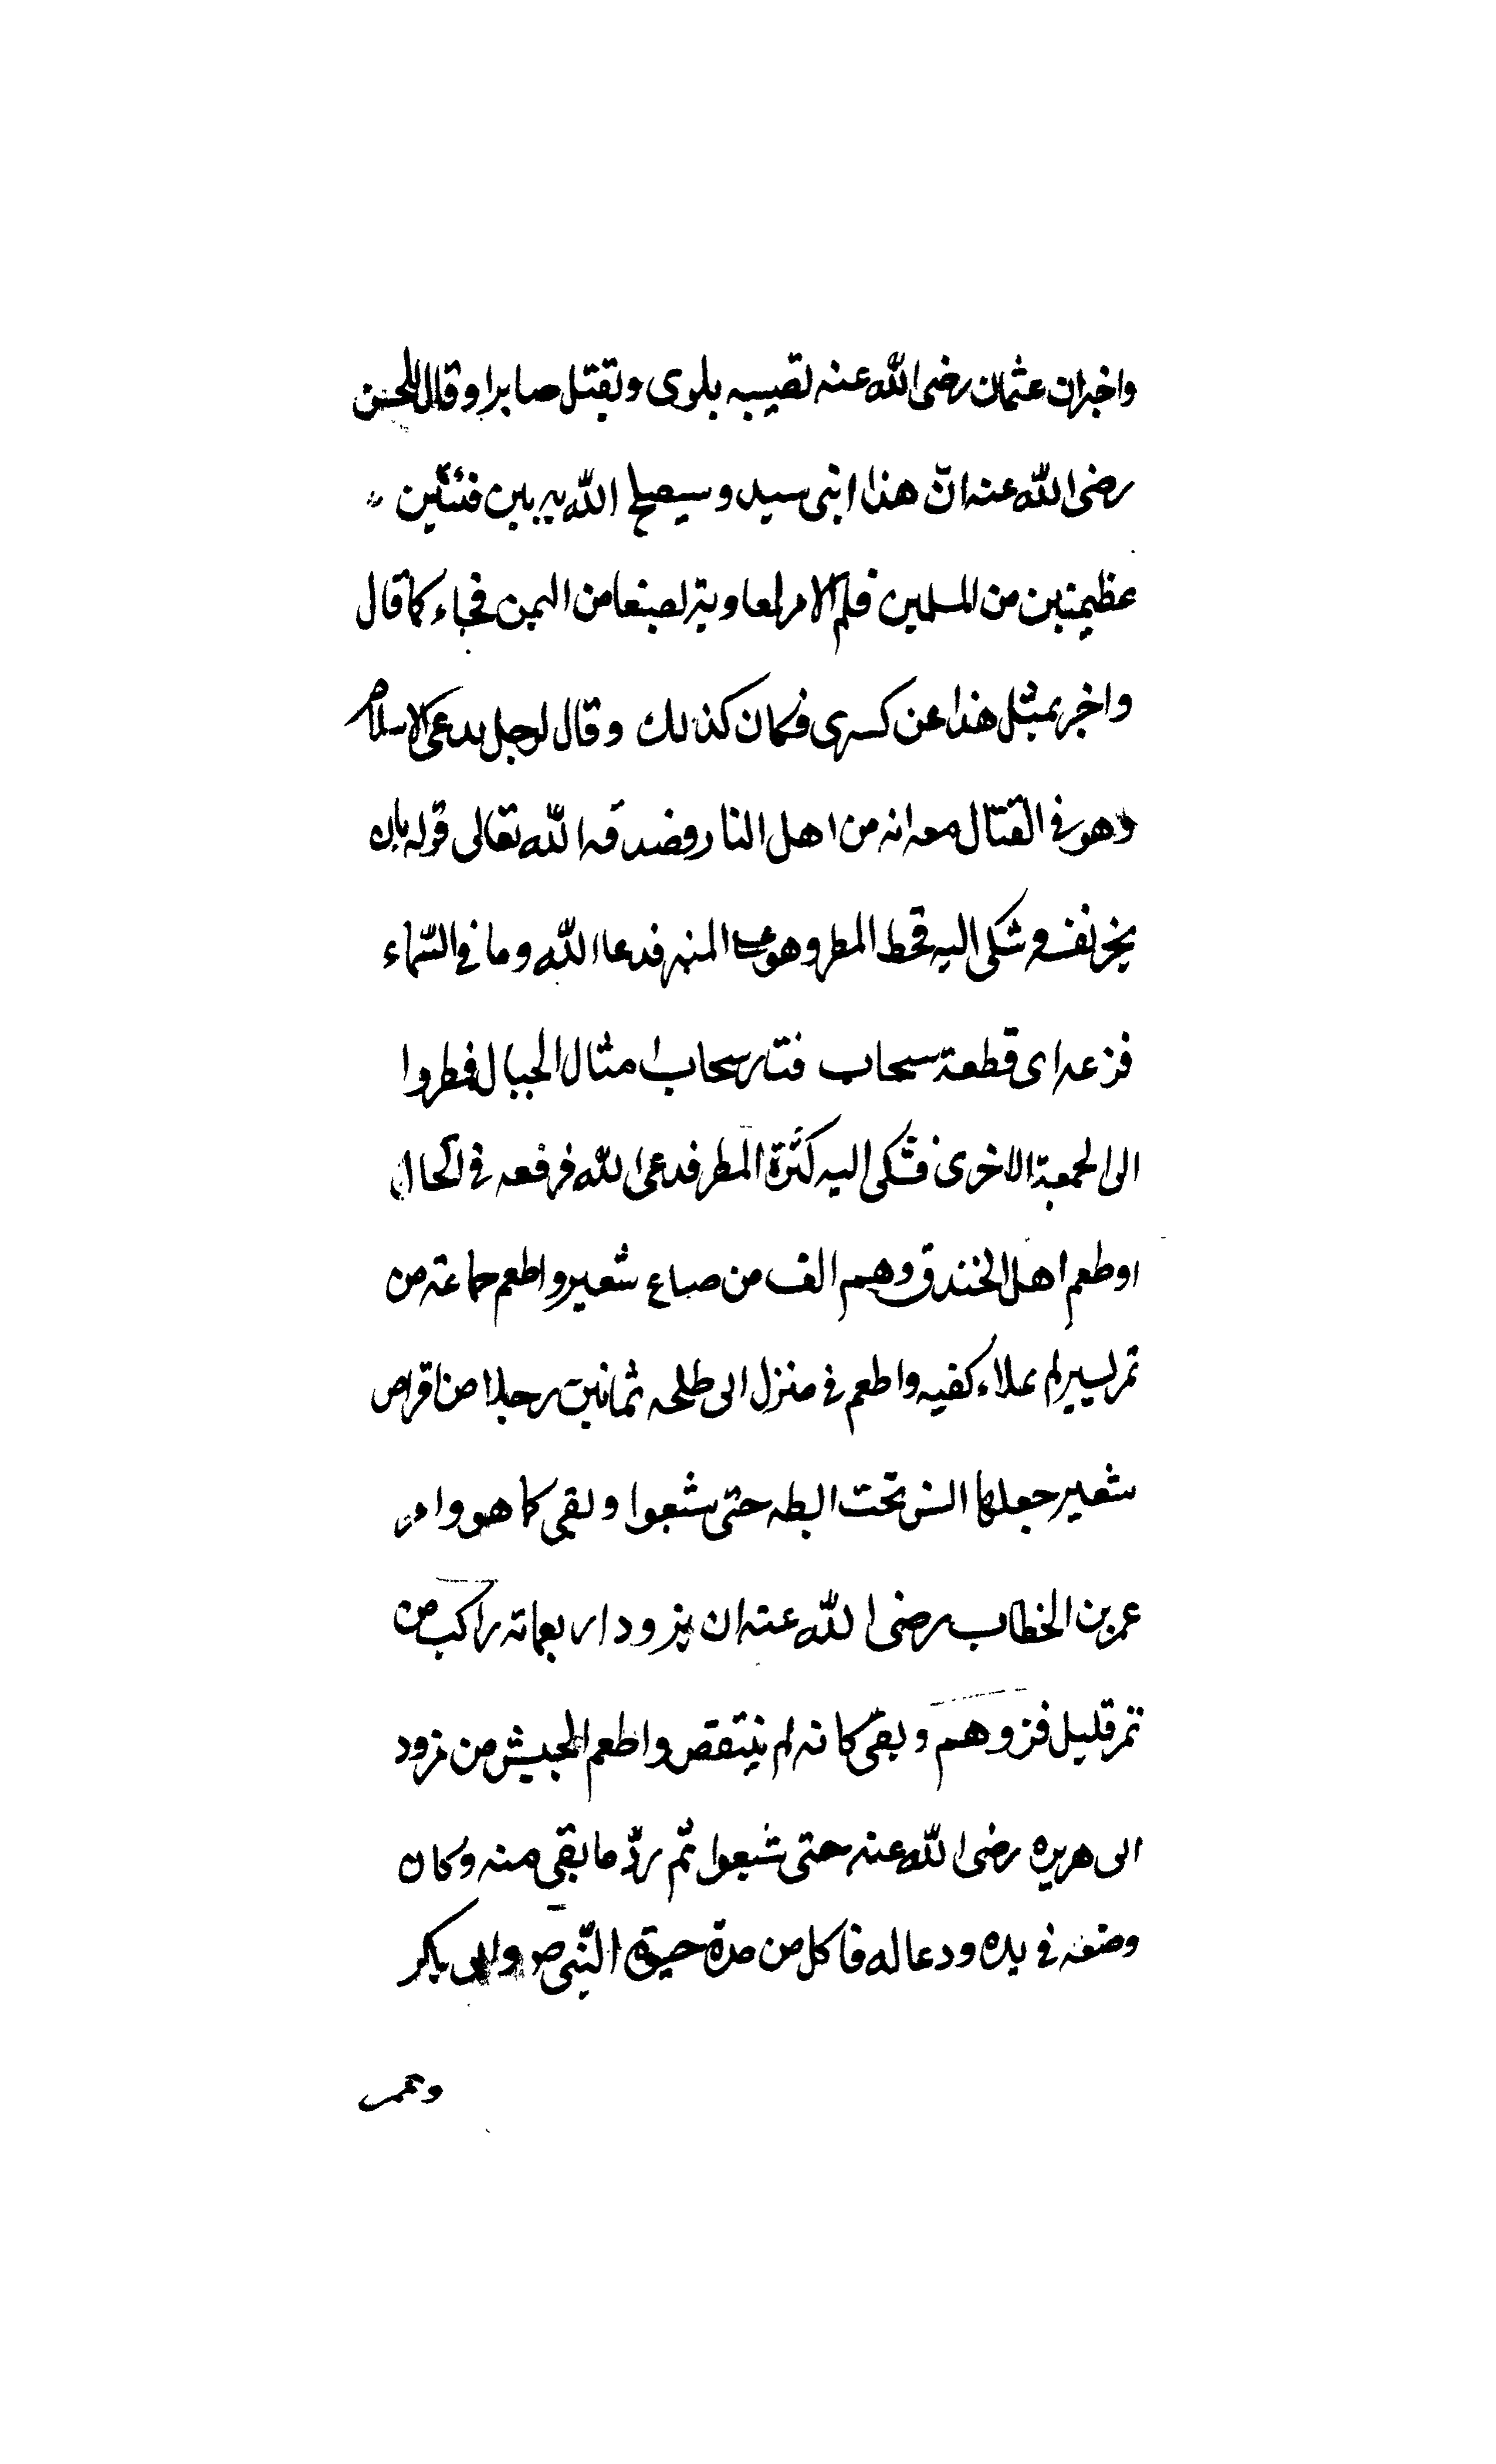 واخبران عثمان رضى الله عنه تصيبه بلوى ويقتل صابرا وقال للحسن
رضى الله عنه انّ هذا ابنى سيد وسيصلح الله به بين فئتين
عظيمتين من المسلمين فلم الامر لمعاوية لصنعا من اليمن فجاء كما قال
واخبر بمثل هذا عن كسرى فكان كذلك وقال لرجل يدعى الاسلام
وهو فى القتال معه انه من اهل النار فصدقه الله تعالى قوله بان
نحر نفسه وشكى اليه قحط المطر وهو على المنبر فدعا الله وما فى السّماء
قزعه اى قطعة سحاب فثار سحاب امثال الجبال فمطروا
الى الجمعة الاخرى فشكى اليه كثرة المطر فدعى الله فرفعه فى الحال
اوطعم اهل الخندق وهم الف من صاع شعير واطعم جماعة من
تمر يسير لم يملاء كفيه واطعم فى منزل ابى طلحه ثمانين رجلا من اقراص
شعير جعلها انس تحت ابطه حتى شبعوا وبقى كما هو وامر
عمر بن الخطاب رضى الله عنه ان يزود اربعمائه راكب من
تمر قليل فزوهم وبقى كانه لم ينتقص واطعم الجيش من مزود
ابى هريره رضى الله عنه حتى شبعوا ثم ردّ ما بقى منه وكان
وضعه فى يده ودعا له فاكل من مدة حيوة النّبى ص وابى بكر
وعمر